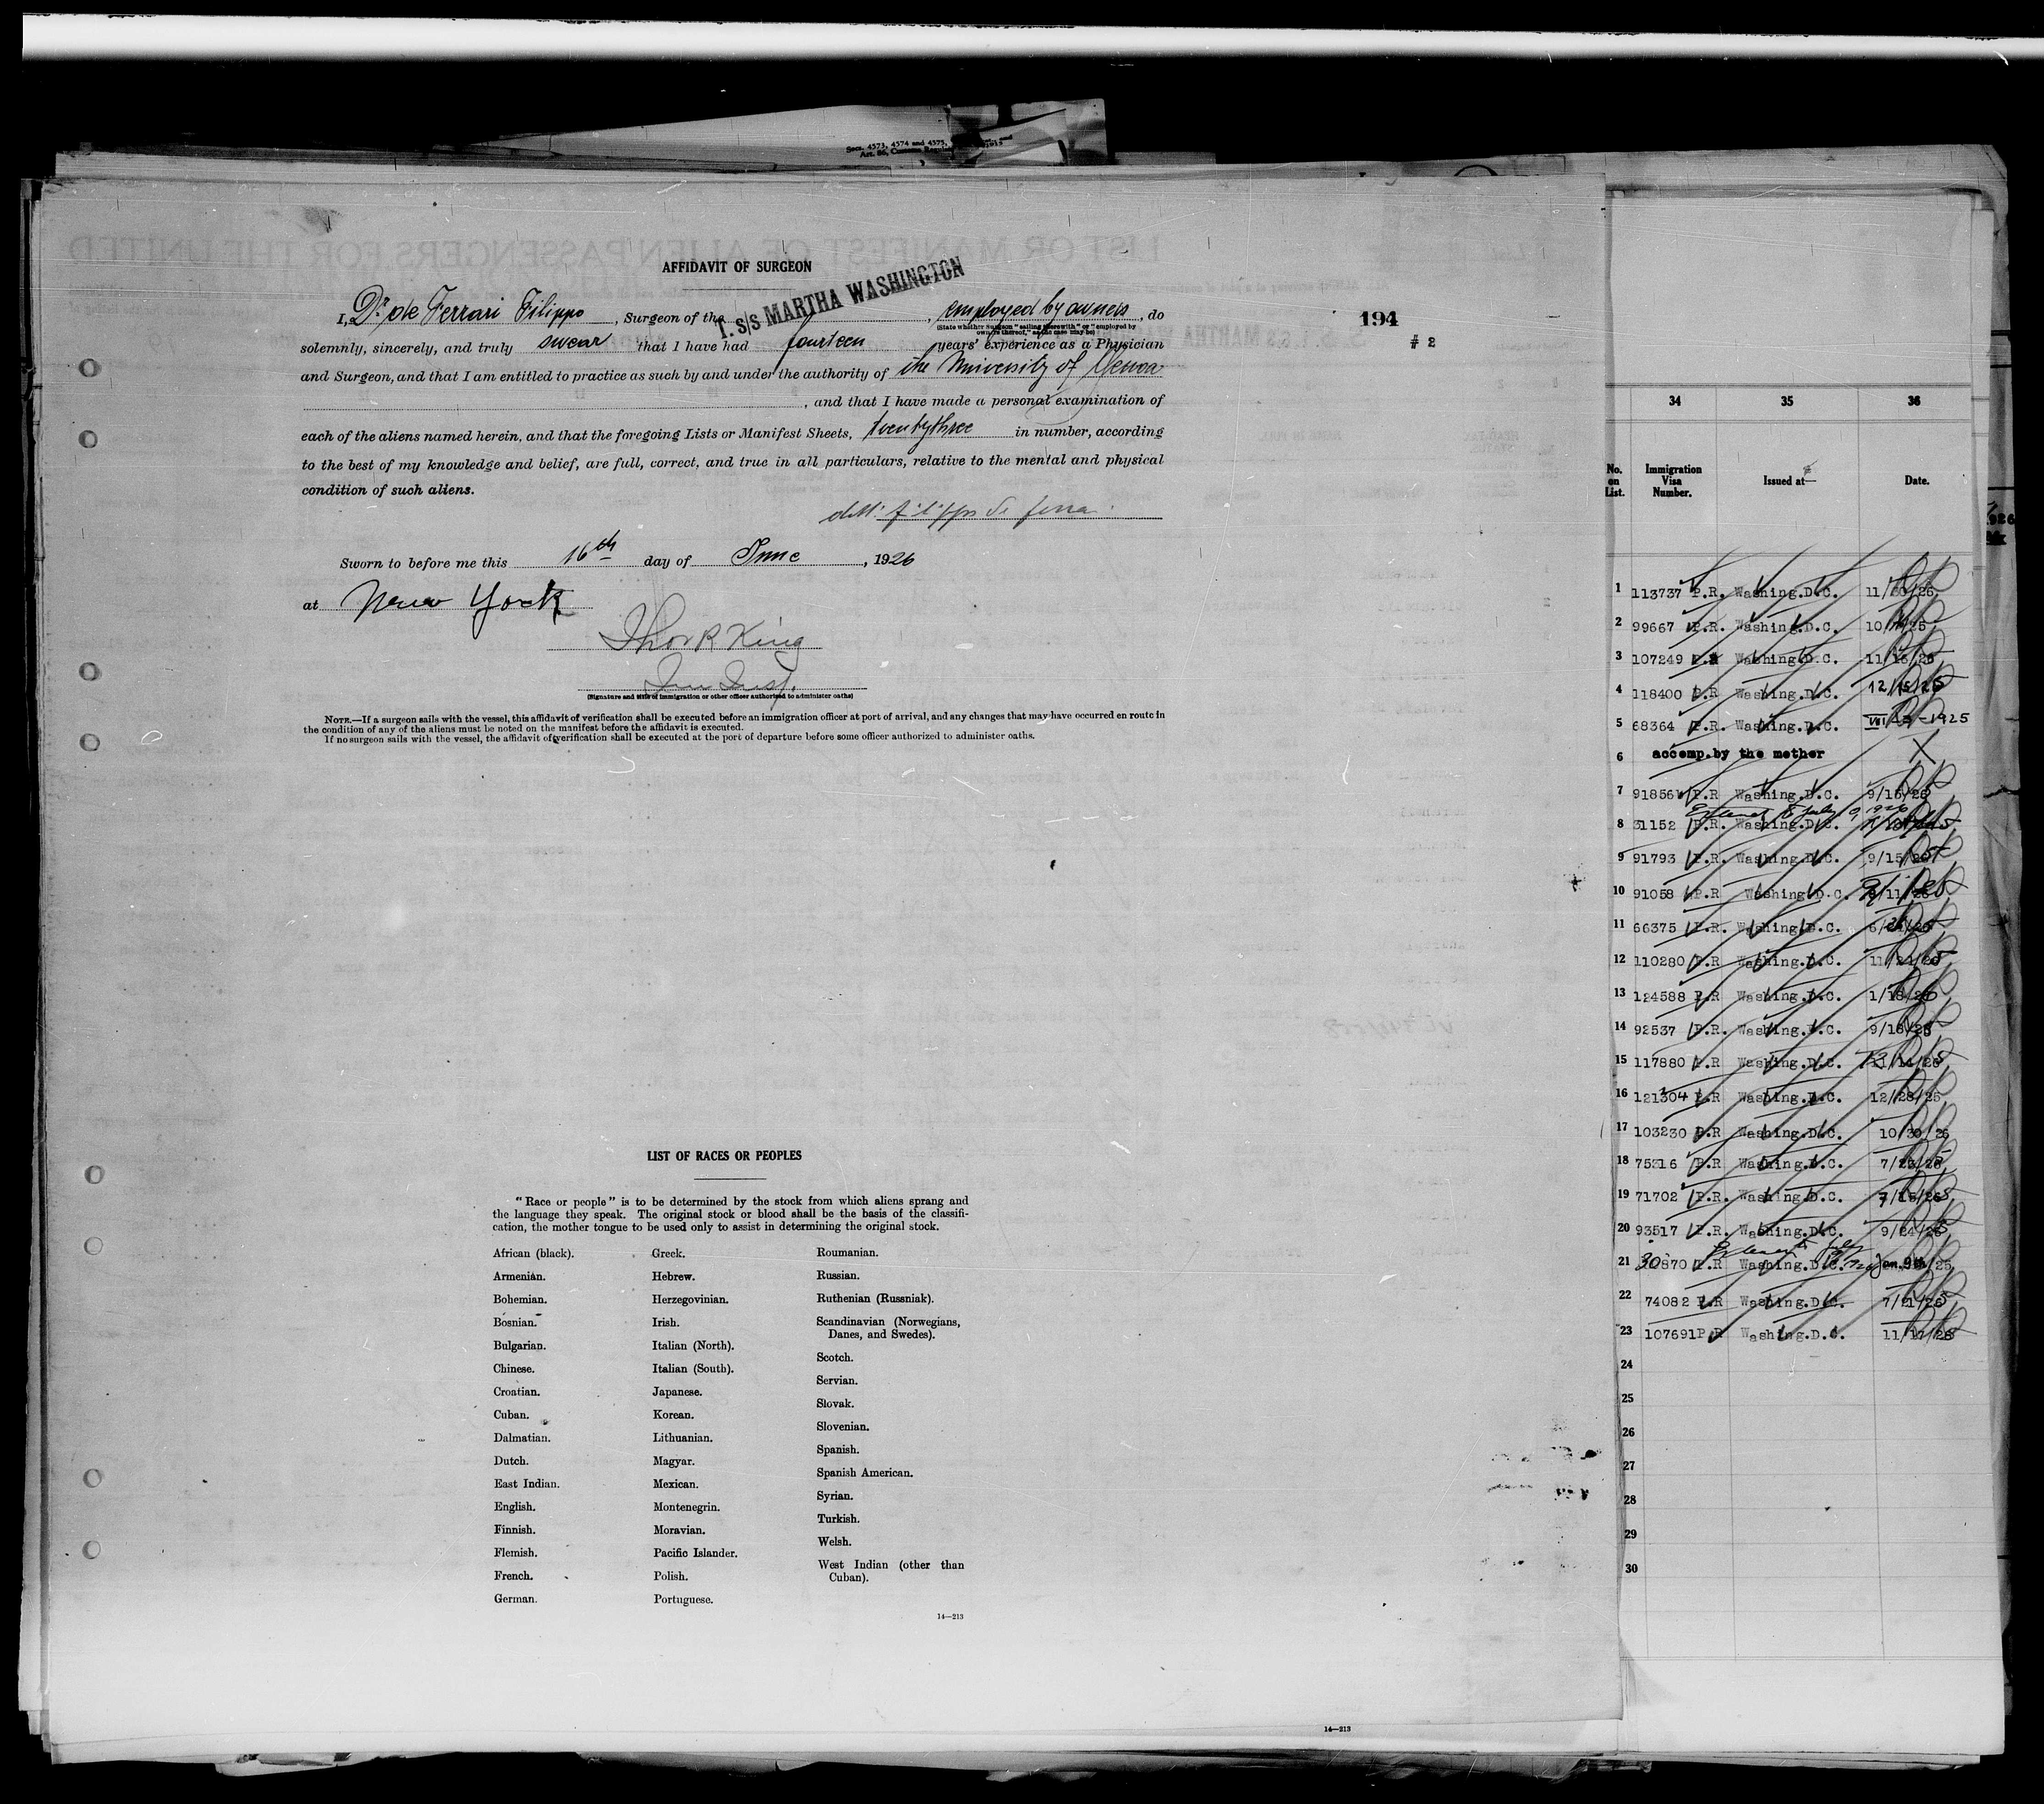 Secs. 4573, 4574 and 4575,
AFFIDAVIT OF SURGEON
T. S/S MARTHA WASHINGTON
I, Dr. de Ferrari Filippo, Surgeon of the , employed by owners, do
(State whether Surgeon "sailing therewith" or "employed by
owners thereof," as the case may be)
solemnly, sincerely, and truly swear that I have had fourteen years' experience as a Physician
and Surgeon, and that I am entitled to practice as such by and under the authority of the University of Genoa
, and that I have made a personal examination of
each of the aliens named herein, and that the foregoing Lists or Manifest Sheets, twentythree in number, according
to the best of my knowledge and belief, are full, correct, and true in all particulars, relative to the mental and physical
condition of such aliens.
Sworn to before me this 16th day of June, 1926
at New York
Thor R King
Imm Insp.
(Signature and title of immigration or other officer authorized to administer oaths)
NOTE.—If a surgeon sails with the vessel, this affidavit of verification shall be executed before an immigration officer at port of arrival, and any changes that may have occurred en route in
the condition of any of the aliens must be noted on the manifest before the affidavit is executed.
If no surgeon sails with the vessel, the affidavit of verification shall be executed at the port of departure before some officer authorized to administer oaths.
194
# 2
LIST OF RACES OR PEOPLES
"Race or people" is to be determined by the stock from which aliens sprang and
the language they speak. The original stock or blood shall be the basis of the classifi-
cation, the mother tongue to be used only to assist in determining the original stock.
African (black).
Armenian.
Bohemian.
Bosnian.
Bulgarian.
Chinese.
Croatian.
Cuban.
Dalmatian.
Dutch.
East Indian.
English.
Finnish.
Flemish.
French.
German.
Greek.
Hebrew.
Herzegovinian.
Irish.
Italian (North).
Italian (South).
Japanese.
Korean.
Lithuanian.
Magyar.
Mexican.
Montenegrin.
Moravian.
Pacific Islander.
Polish.
Portuguese.
Roumanian.
Russian.
Ruthenian (Russniak).
Scandinavian (Norwegians,
Danes, and Swedes).
Scotch.
Servian.
Slovak.
Slovenian.
Spanish.
Spanish American.
Syrian.
Turkish.
Welsh.
West Indian (other than
Cuban).
14—213
14—213
34 35 36
No. on List. Immigration Visa Number. Issued at Date.
1 113737 P.R. Washing.D.C.
2 99667 P.R. Washing.D.C.
3 107249 P.R Washing.D.C.
4 118400 P.R Washing.D.C. 12/15/25
5 68364 P.R. Washing.D.C.
6 accomp.by the mother X
7 P.R Washing.D.C.
8 31152 P.R. Washing.D.C.
9 91793 P.R. Washing.D.C.
10 91058 P.R Washing.D.C.
11 66375 P.R. Washing.D.C.
12 110280 P.R Washing.D.C.
13 124588 P.R Washing.D.C.
14 92537 P.R. Washing.D.C.
15 117880 P.R Washing.D.C.
16 121304 P.R Washing.D.C. 12/28/25
17 103230 P.R Washing.D.C.
18 75316 P.R Washing.D.C.
19 71702 P.R. Washing.D.C.
20 93517 P.R. Washing.D.C.
21 30870 P.R Washing.D.C.
22 74082 P.R Washing.D.C.
23 107691 P.R Washing.D.C.
24
25
26
27
28
29
30